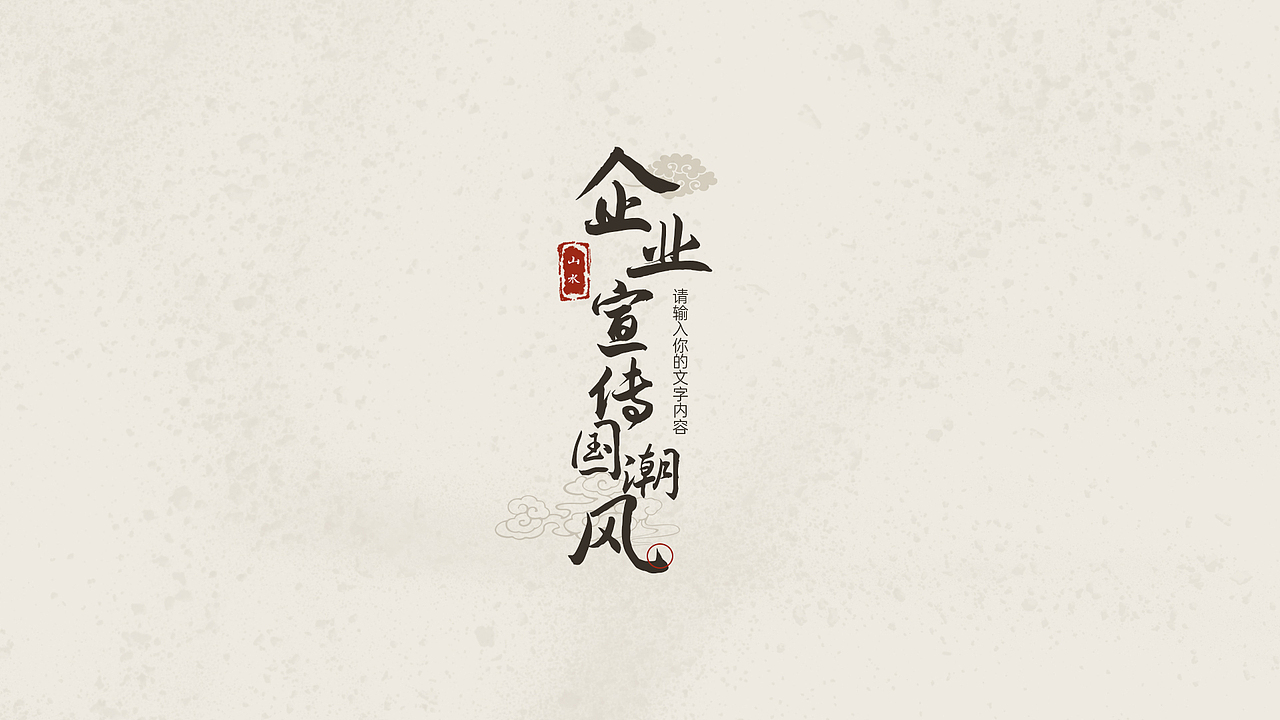 企业宣传国潮风
请输入你的文字内容
山水